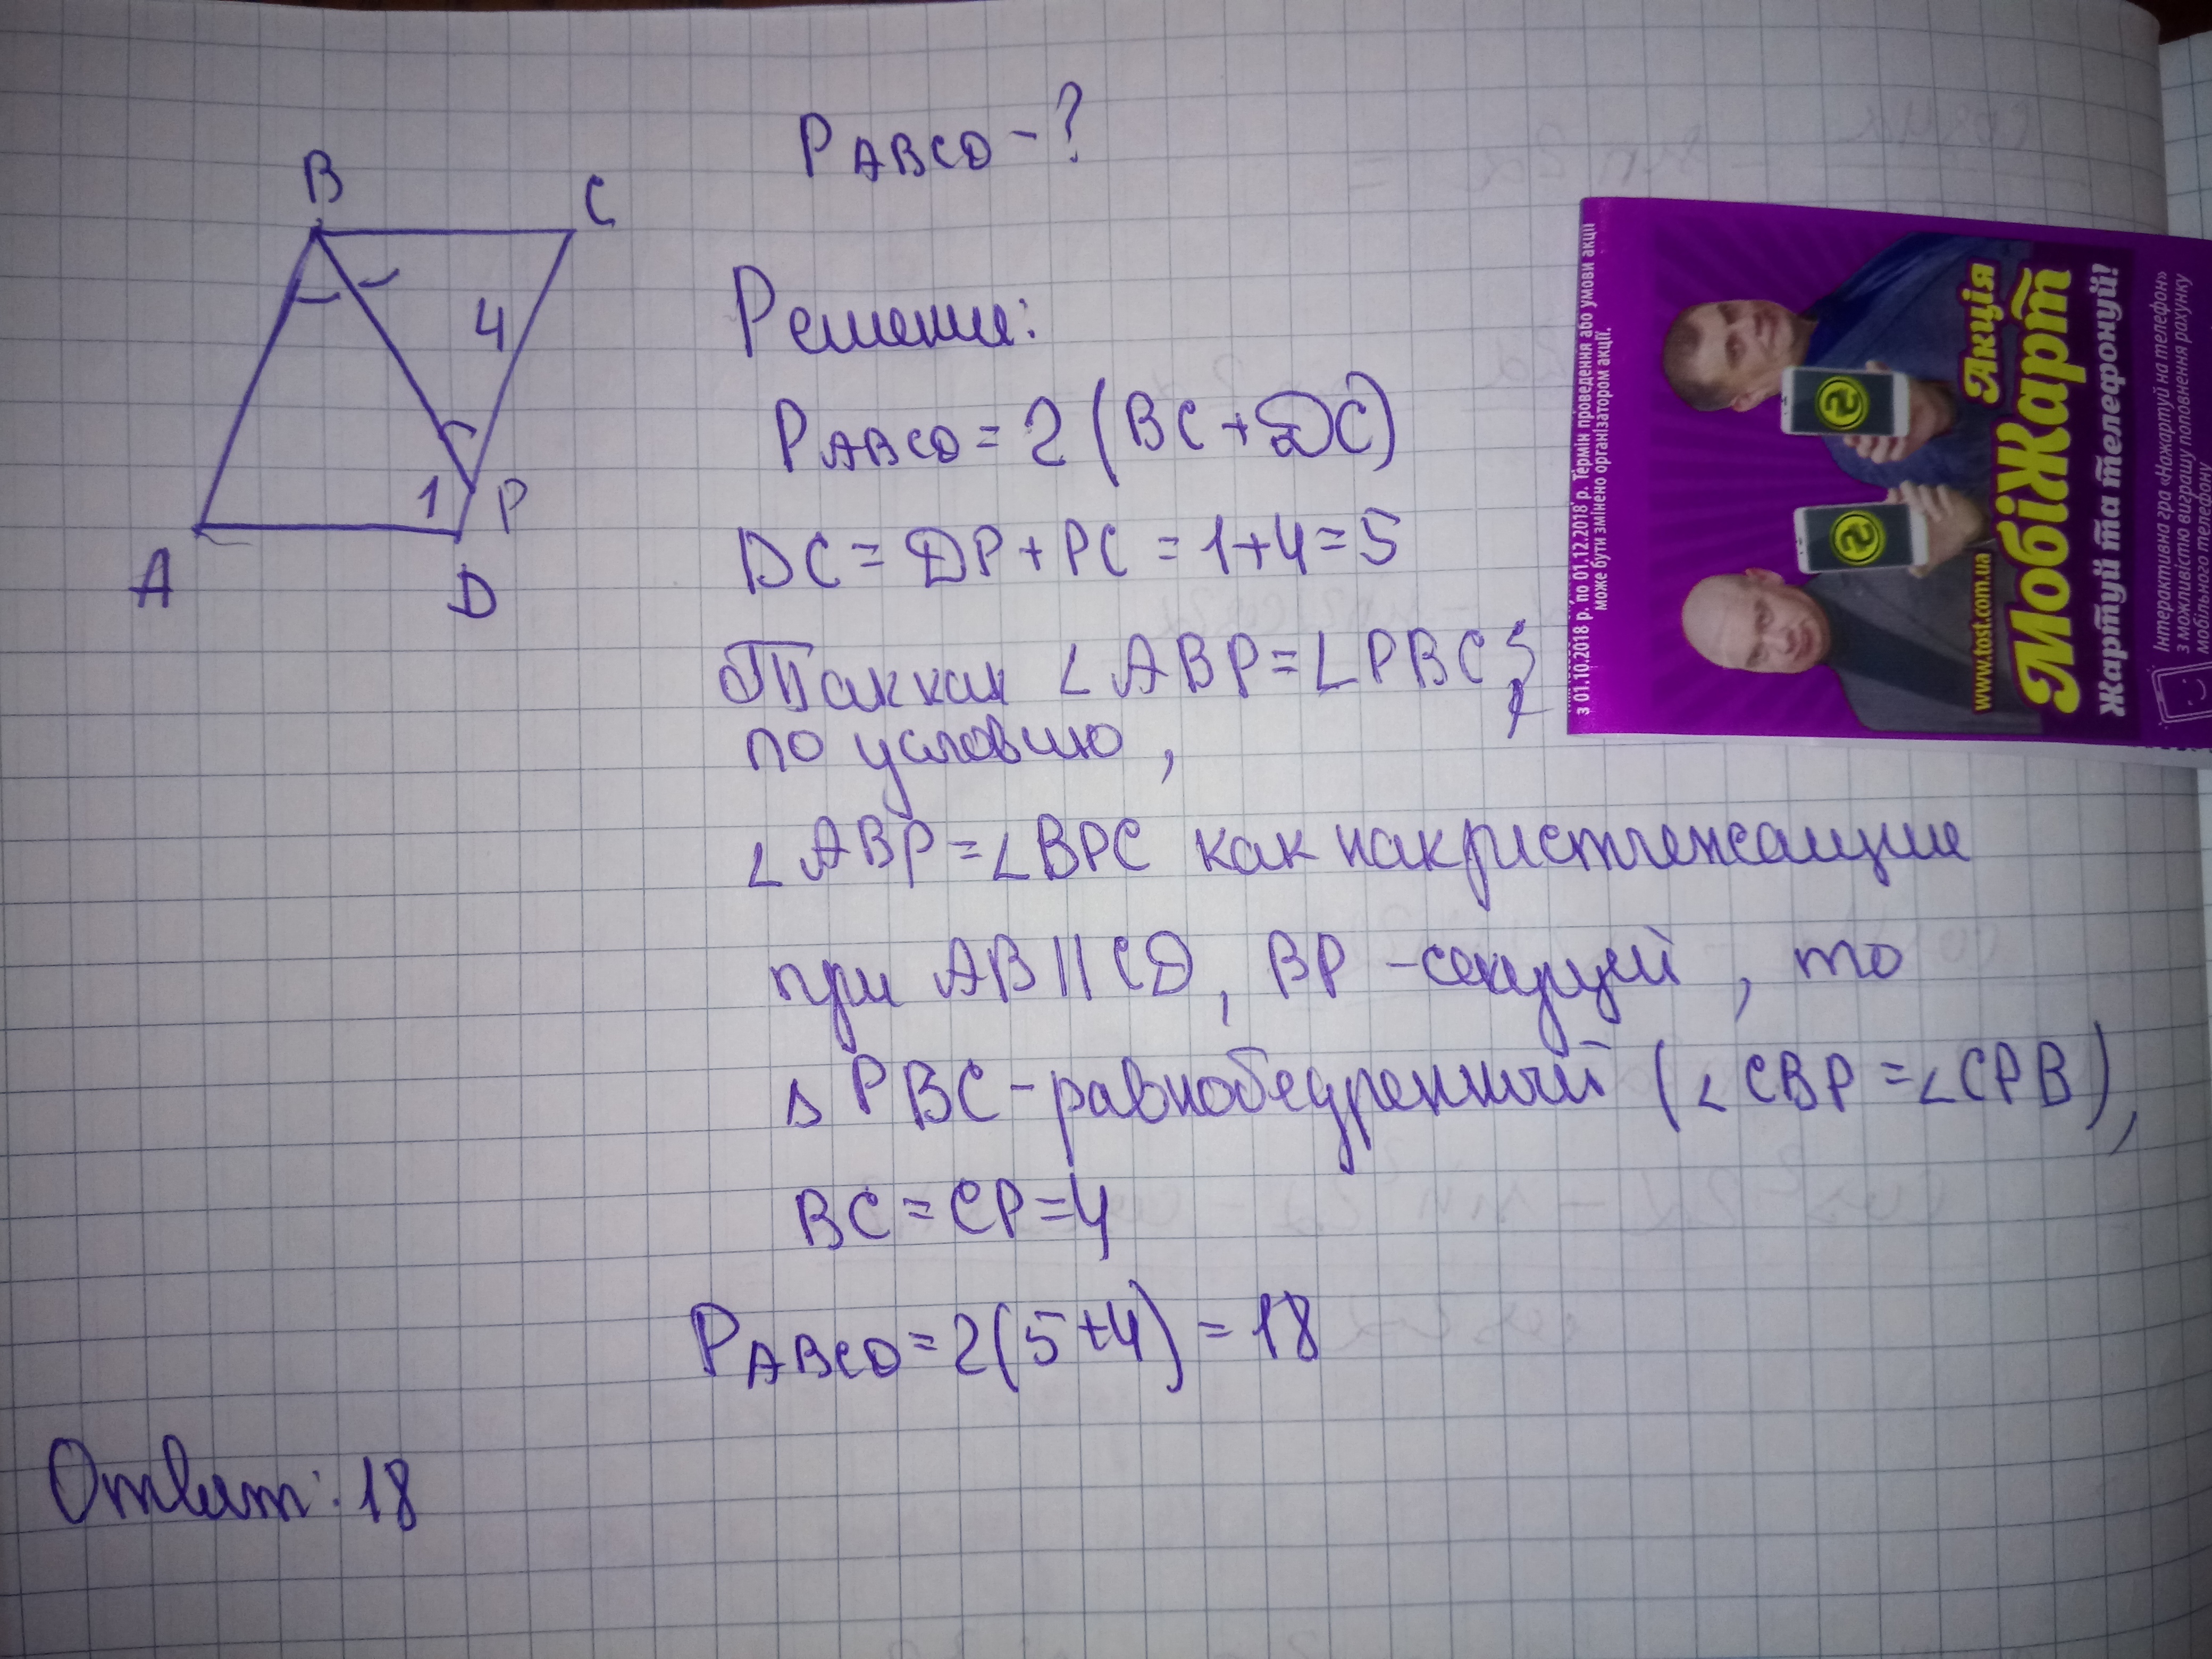 P ABCD - ?
B
C
4
1
P
A
D
Решение:
P ABCD = 2 (BC + DC)
DC = DP + PC = 1+4 = 5
Так как ∠ABP = ∠PBC
по условию,
∠ABP = ∠BPC как накрест лежащие
при AB || CD, BP - секущей, то
Δ PBC - равнобедренный (∠CBP = ∠CPB),
BC = CP = 4
P ABCD = 2(5+4) = 18
Ответ: 18
з 01.10.2018 р. по 01.12.2018 р. Термін проведення або умови акції
може бути змінено організатором акції.
www.tost.com.ua
Акція
МобіЖарт
Жартуй та телефонуй!
Інтерактивна гра «Нажартуй на телефон»
з можливістю виграшу поповнення рахунку
мобільного телефону